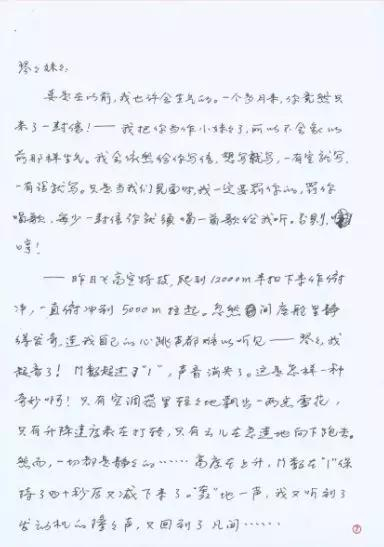 琴々妹々:
要是在以前,我也许会生气的。一个多月来,你竟然只
来了一封信!——我把你当作小妹々了,所以不会象以
前那样生气。我会依然给你写信,想写就写,一有空就写,
一有话就写。只是当我们见面时,我一定要罚你的,罚你
唱歌,每少一封信你就须唱一首歌给我听。否则,
哼!
——昨日飞高空特技,爬到12000m来扣下来作俯
冲,一直俯冲到5000m拉起。忽然间座舱里静
得出奇,连我自己的心跳声都难以听见——琴々,我
超音了!M数超过了"1",声音消失了。这是怎样一种
奇妙啊!只有空调器里轻々地飘出一两朵雪花,
只有升降速度表在打转,只有云儿在急速地向下跑去。
然而,一切都是静々的……高度在上升,M数在"1"保
持了四十秒后又减下来了。"轰"地一声,我又听到了
发动机的隆々声,又回到了凡间……
②